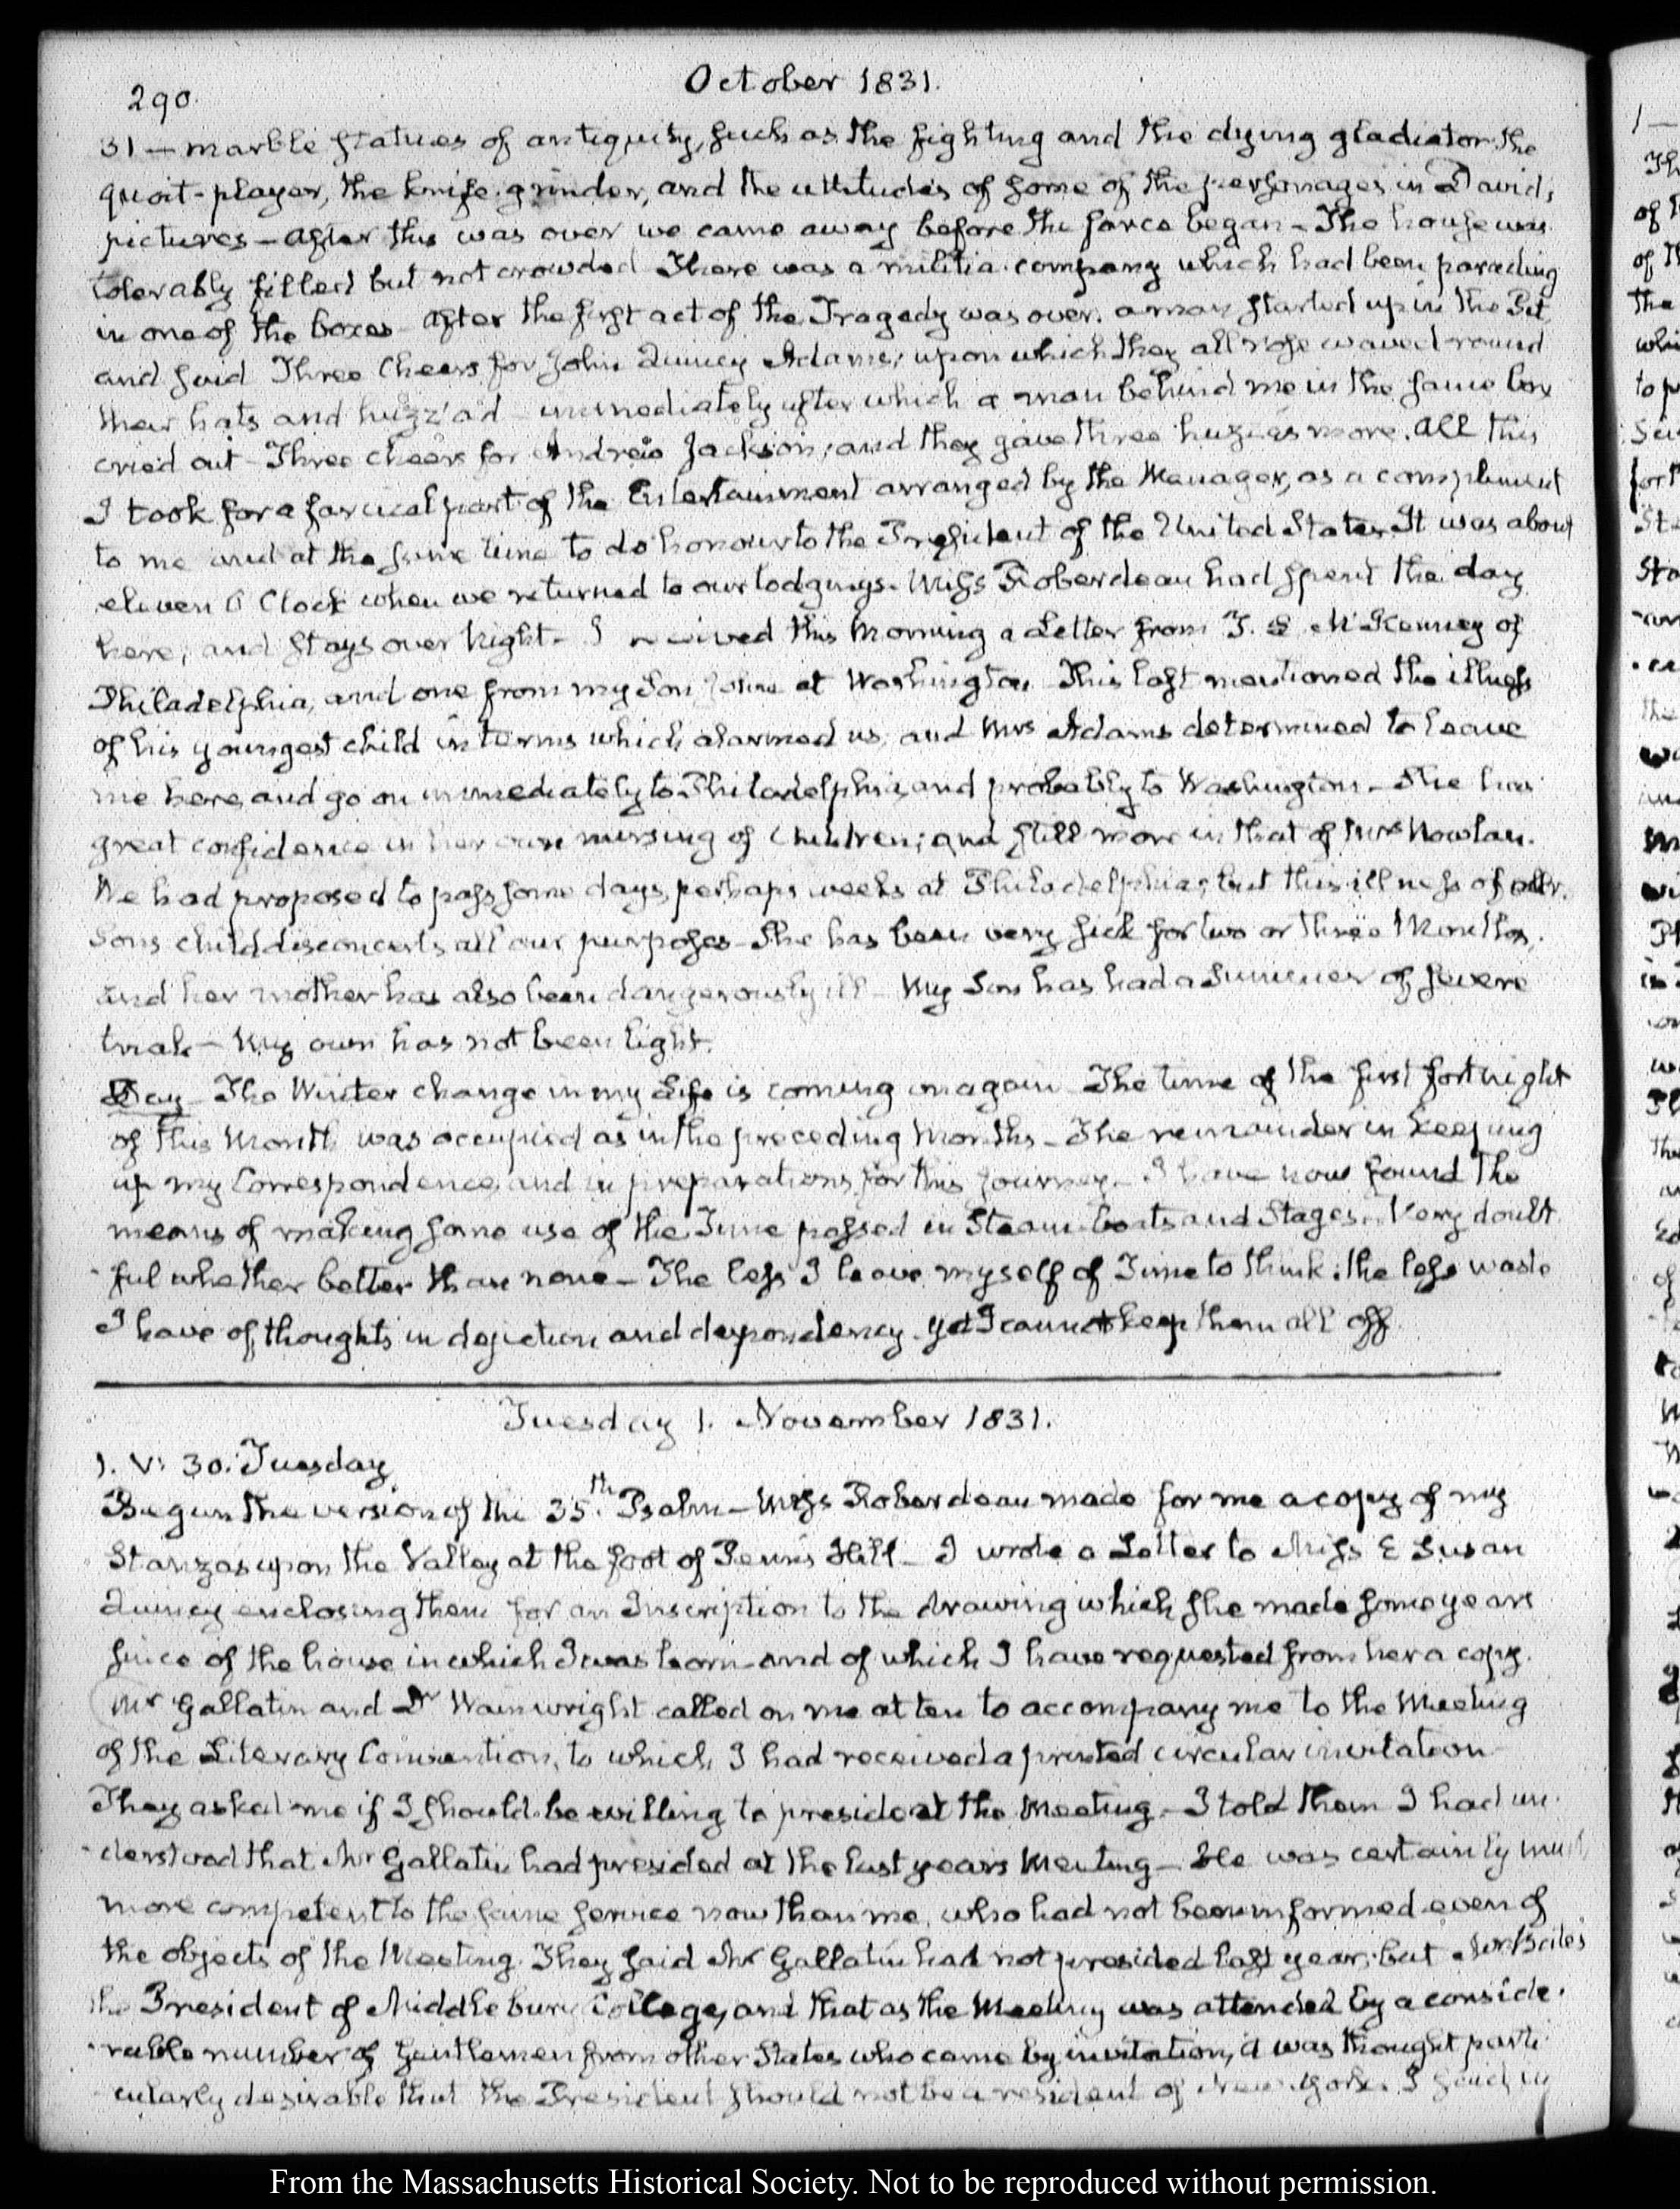 290.
October 1831.
31 — marble statues of antiquity, such as the fighting and the dying gladiator. the
quoit-player, the knife-grinder, and the attitudes of some of the personages in David's
pictures — After this was over we came away before the farce began — The house was
tolerably filled but not crowded There was a militia company which had been parading
in one of the boxes — After the first act of the Tragedy was over. a man started up in the Pit
and said Three Cheers for John Quincy Adams; upon which they all rose waved round
their hats and huzza'd — immediately after which a man behind me in the same box
cried out — Three cheers for Andrew Jackson; and they gave three huzzas more. All this
I took for a farcical part of the Entertainment arranged by the Manager, as a compliment
to me and at the same time to do honour to the President of the United States. It was about
eleven O Clock when we returned to our lodgings. Miss Roberdeau had spent the day
here, and stays over Night — I received this Morning a Letter from T. L. McKenney of
Philadelphia, and one from my Son John at Washington This last mentioned the illness
of his youngest child in terms which alarmed us, and Mrs Adams determined to leave
me here, and go on immediately to Philadelphia, and probably to Washington — She has
great confidence in her own nursing of Children; and still more in that of Mrs Nowlan.
We had proposed to pass some days, perhaps weeks at Philadelphia; but this illness of our
Sons child disconcerts all our purposes — She has been very sick for two or three Months,
and her mother has also been dangerously ill — My Son has had a Summer of severe
trials — My own has not been light.
Day — The Winter change in my Life is coming on again The time of the first fortnight
of this Month was occupied as in the preceding Months — The remainder in keeping
up my Correspondence, and in preparations for this journey — I have now found the
means of making some use of the Time passed in Steam-boats and Stages. Very doubt
-ful whether better than none — The less I leave myself of Time to think. the less waste
I have of thoughts in dejection and despondency. yet I cannot keep them all off
Tuesday 1. November 1831.
1. V: 30. Tuesday
Begun the version of the 35th. Psalm — Miss Roberdeau made for me a copy of my
Stanzas upon the Valley at the foot of Penn's Hill — I wrote a Letter to Miss E Susan
Quincy enclosing them for an Inscription to the drawing which she made some years
since of the house in which I was born and of which I have requested from her a copy.
Mr Gallatin and Dr Wainwright called on me at ten to accompany me to the Meeting
of the Literary Convention, to which, I had received a printed circular invitation
They asked me if I should be willing to preside at the Meeting — I told them I had un-
-derstood that Mr Gallatin had presided at the last years Meeting — He was certainly much
more competent to the same service now than me, who had not been informed even of
the objects of the Meeting. They said Mr Gallatin had not presided last year; but Mr Bates
the President of Middlebury College, and that as the Meeting was attended by a conside-
-rable number of Gentlemen from other States who came by invitation, it was thought parti-
-cularly desirable that the President should not be a resident of New-York. I said
From the Massachusetts Historical Society. Not to be reproduced without permission.